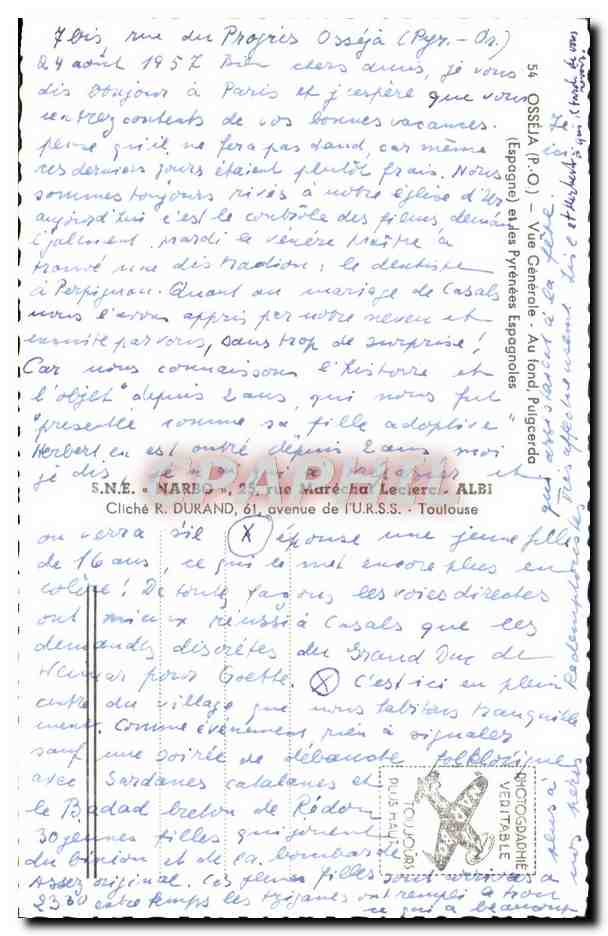 7 bis, rue du Progrès Osséja (Pyr.-Or.)
24 août 1957 Bien chers amis, je vous
dis toujours à Paris et j'espère que vous
rentrez contents de vos bonnes vacances.
qu'il ne fera pas chaud, car même
ces derniers jours étaient plutôt frais. Nous
sommes toujours rivés à notre église d'Ur
aujourd'hui c'est le contrôle des films, demain
également, mardi le vénéré maître a
trouvé une distraction : le dentiste
à Perpignan. Quant au mariage de Casals
nous l'avons appris par notre neveu et
ensuite par vous, sans trop de surprise !
Car nous connaissons l'histoire et
l'objet "depuis 2 ans, qui nous fut
"présenté comme sa fille adoptive"
Herbert en est outré depuis 2 ans, moi
je dis
on verra s'il épouse une jeune fille
de 16 ans, ce qui le met encore plus en
colère ! De toute façons les voies directes
ont mieux réussi à Casals que les
demandes discrètes du Grand Duc de
Weimar pour Goethe. C'est ici en plein
centre du village que nous habitons tranquille
ment. Comme événement rien à signaler
sauf une soirée de débauche folklorique
avec Sardanes catalanes et
le Bagad breton de Rédon
30 jeunes filles qui jouent
du biniou et de la bombarde
Assez original. Ces jeunes filles sont arrivées à
23h30 entre temps les tziganes ont rempli le trou
ce qui a beaucoup
plu à
nos pères
Rédemptoristes
qui assistaient à la fête.
Très affectueusement Lise et Herbert
54 OSSÉJA (P.-O.) — Vue Générale - Au fond, Puigcerda
(Espagne) et les Pyrénées Espagnoles
CPAPHIL
S.N.E. « NARBO », 25, rue Maréchal Leclerc - ALBI
Cliché R. DURAND, 61, avenue de l'U.R.S.S. - Toulouse
PHOTOGRAPHIE
VÉRITABLE
TOUJOURS
PLUS HAUT